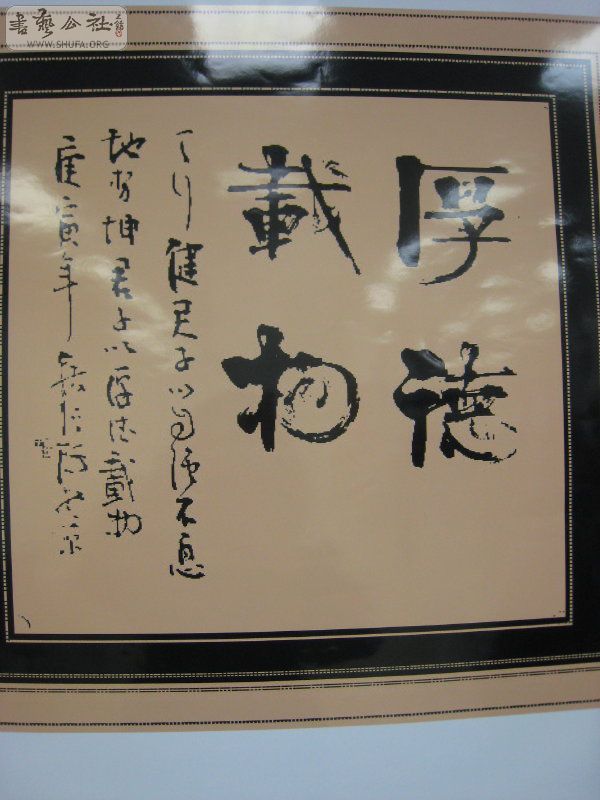 厚德
載物
天行健君子以自强不息
地势坤君子以厚德載物
庚寅年
書藝公社
WWW.SHUFA.ORG